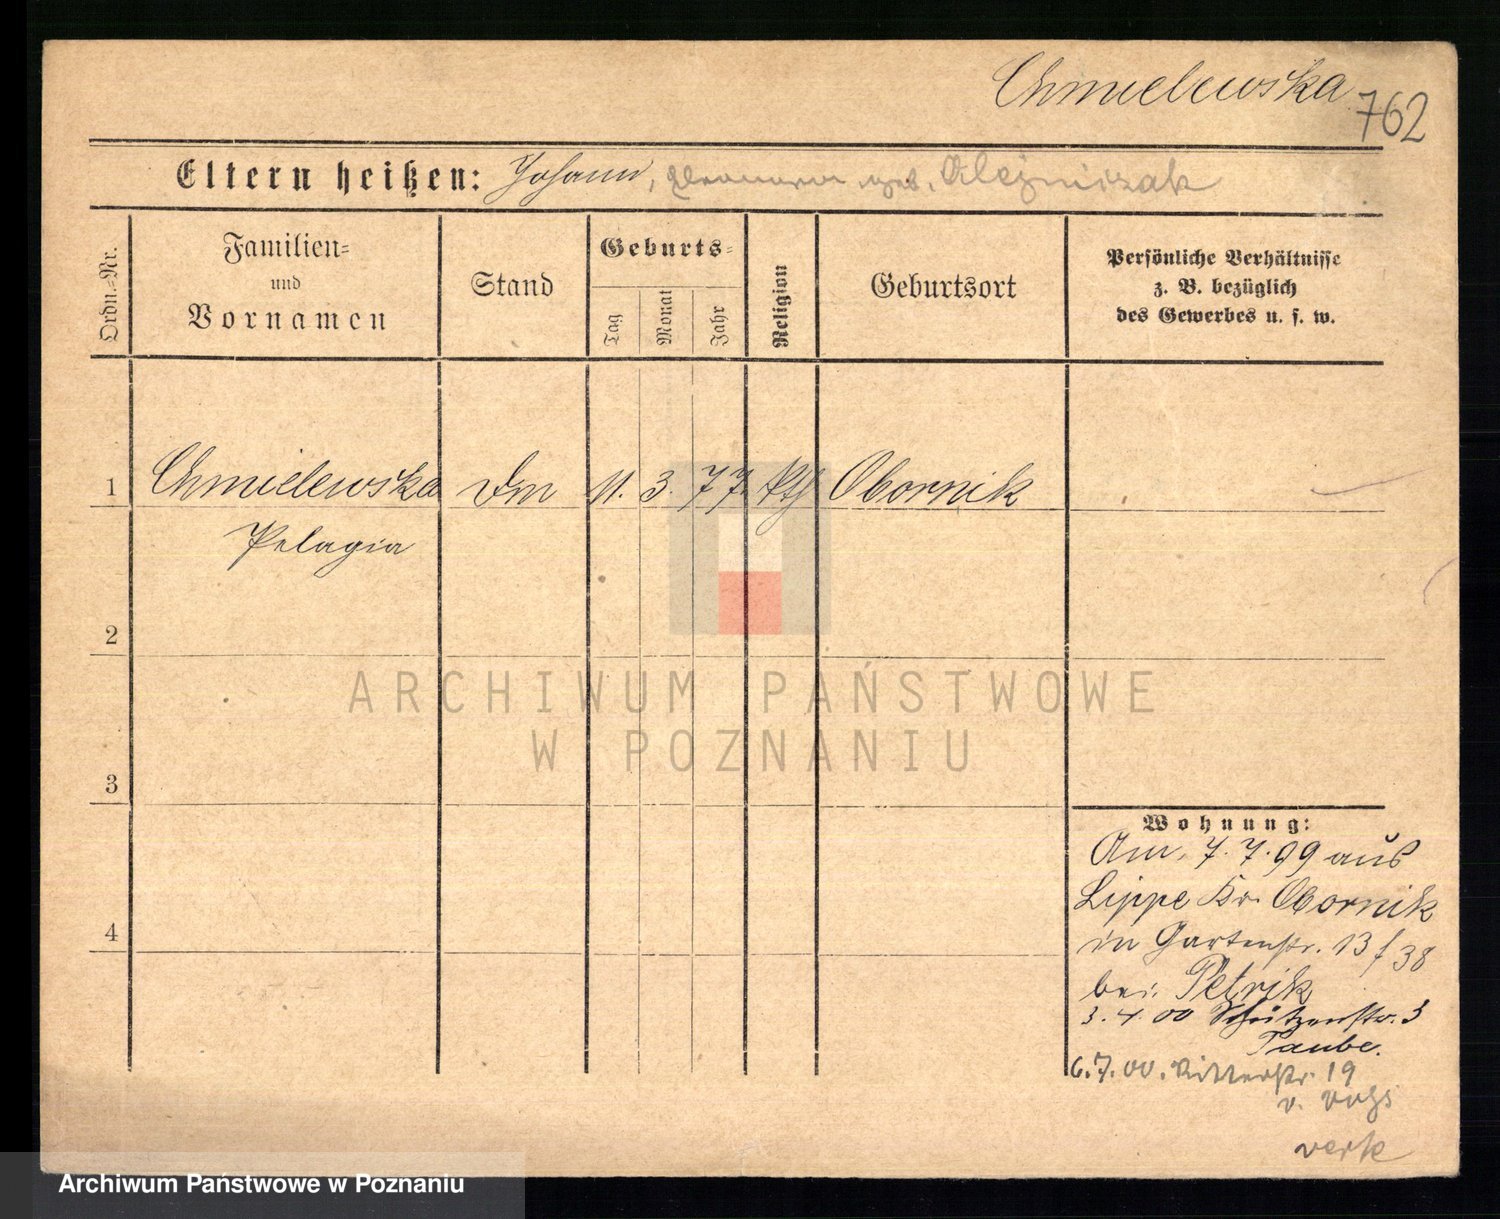 Chmielewska
762
Eltern heißen: Johann, Eleonora geb. Olejniczak
Ordn.-Nr.
Familien-
und
Vornamen
Stand
Geburts-
Tag
Monat
Jahr
Religion
Geburtsort
Persönliche Verhältnisse
z. B. bezüglich
des Gewerbes u. s. w.
1 Chmielewska 11. 3. 77. kth Obornik
Pelagia
2
ARCHIWUM PAŃSTWOWE
W POZNANIU
3
4
Wohnung:
Am 7.7.99 aus
Lippe Kr. Obornik
in Gartenstr. 13 f 38
bei Petrik
3.4.00 Schützenstr. 3
Taube.
6.7.00. Ritterstr. 19
v.
Archiwum Państwowe w Poznaniu